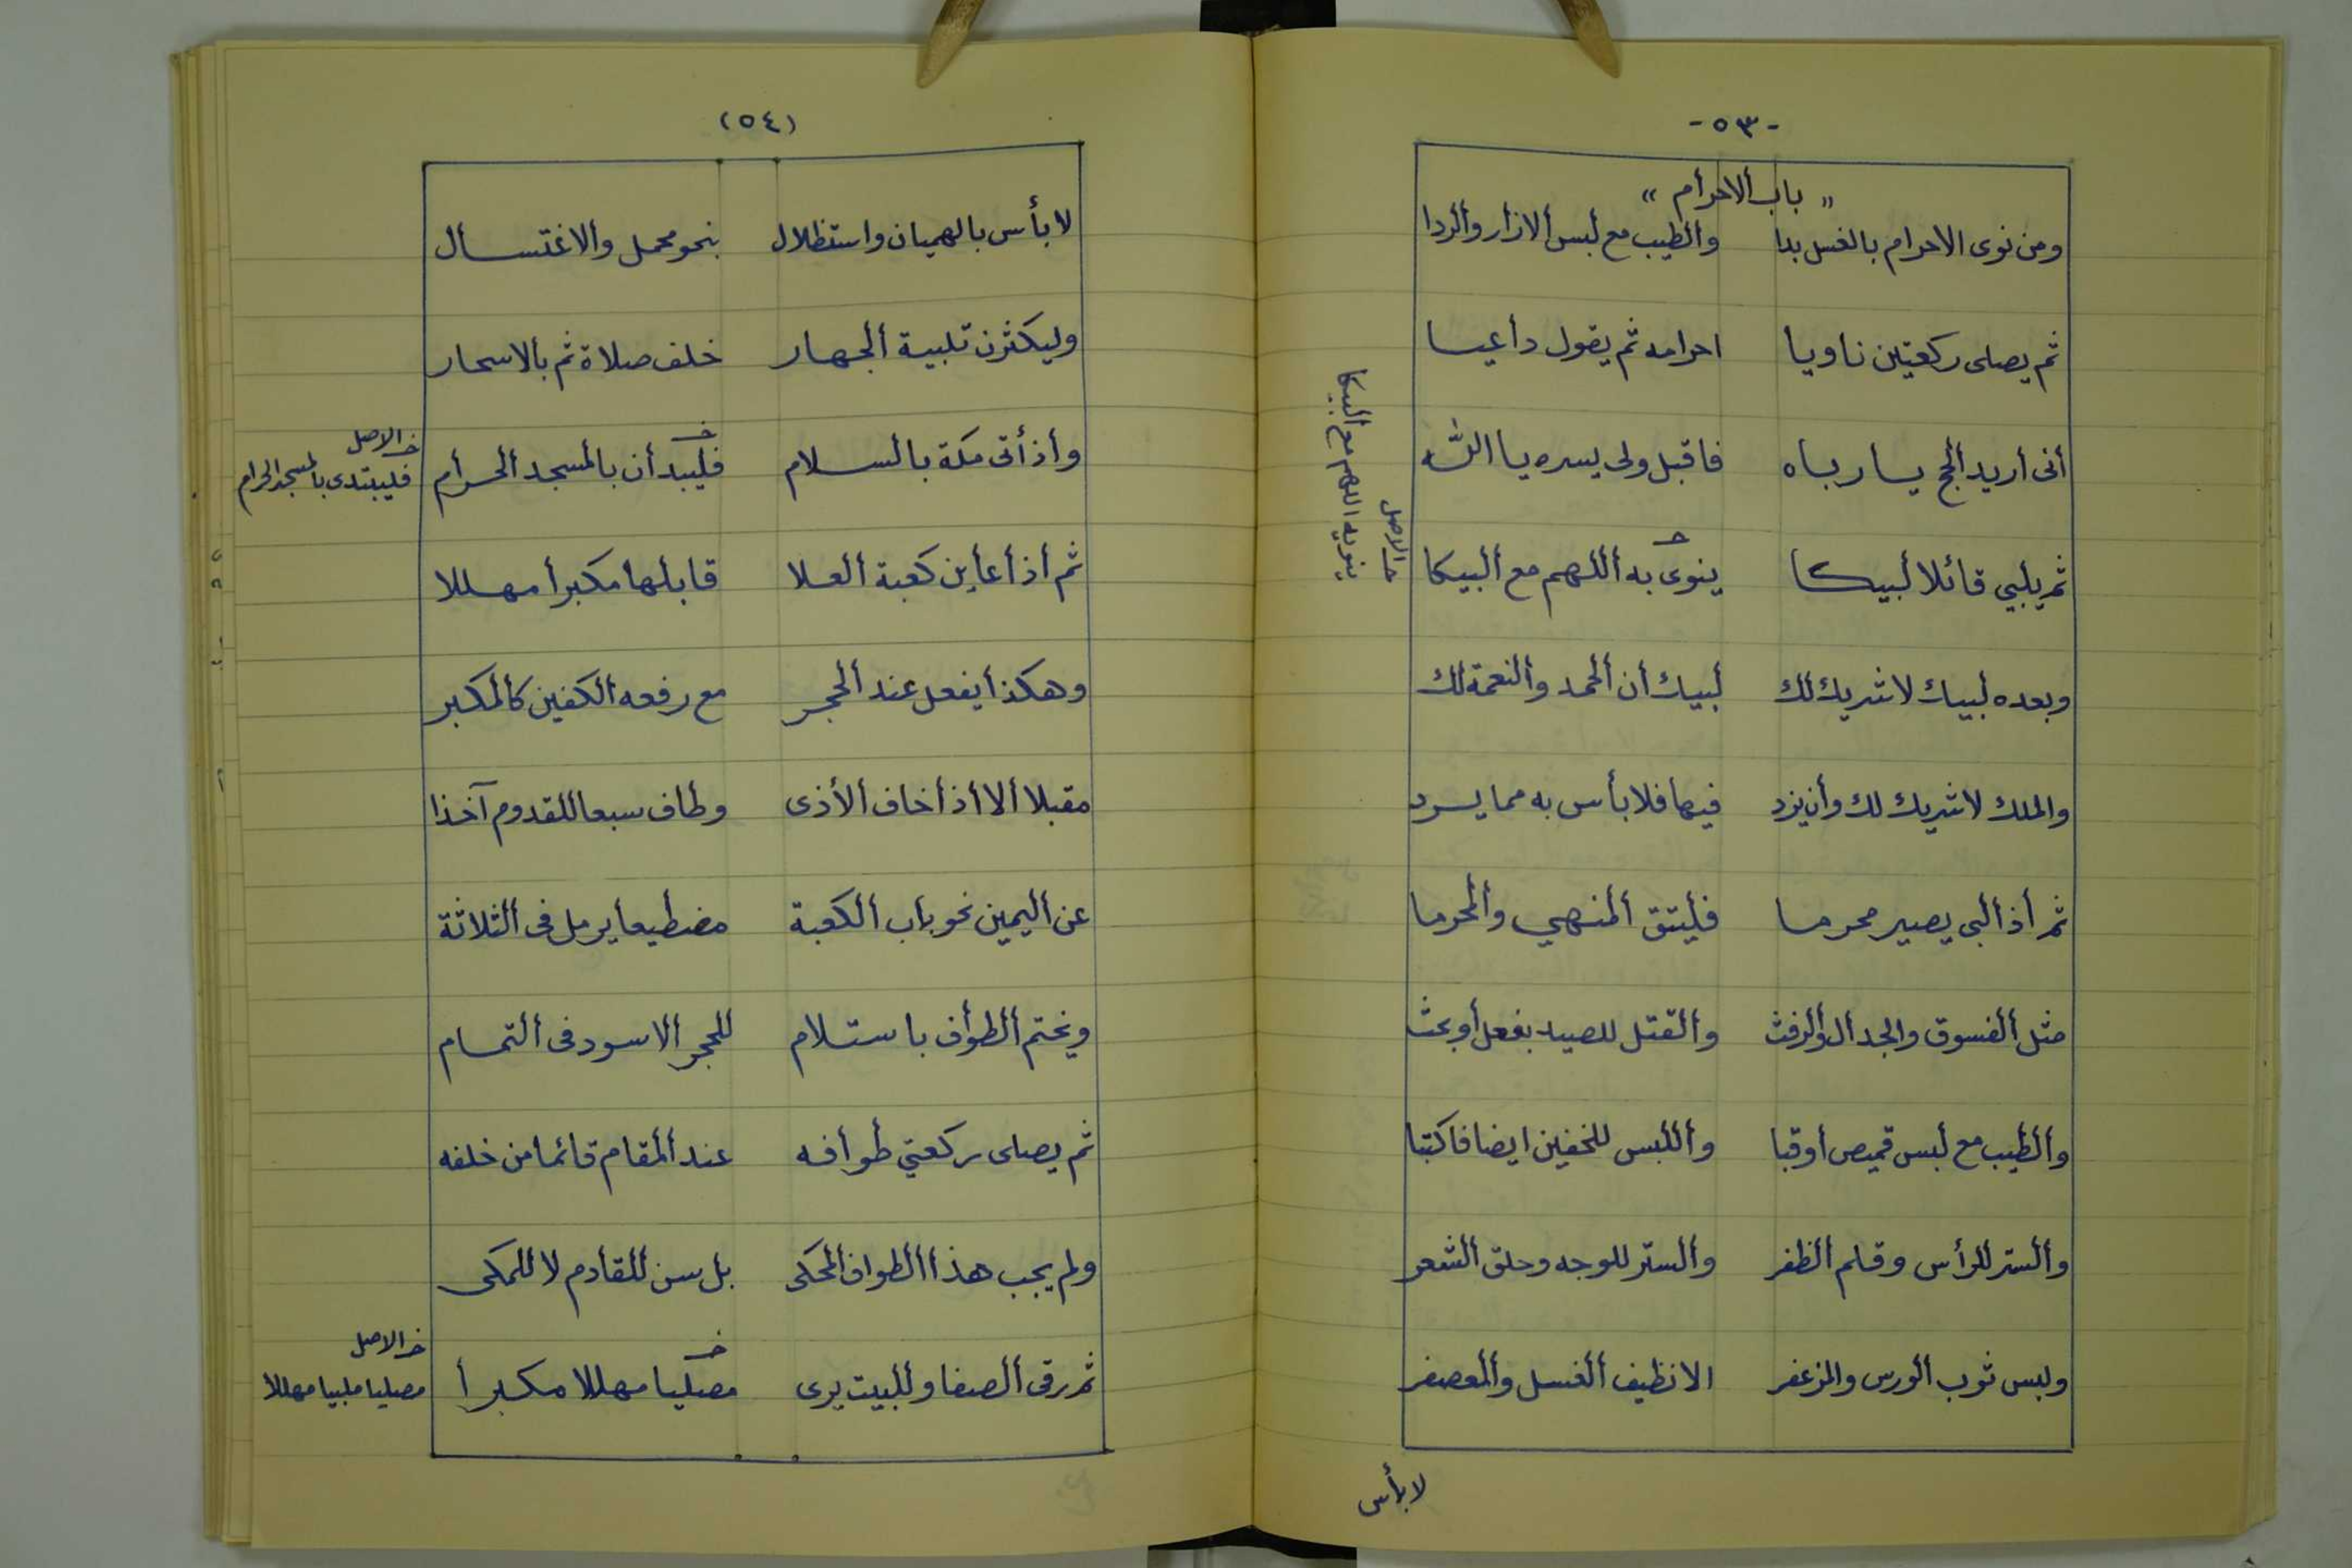 -٥٣-
" باب الاحرام "
ومن نوى الاحرام بالغسل بدا والطيب مع لبس الازار والردا
ثم يصلى ركعتين ناويا احرامه ثم يقول داعيا
أنى أريد الحج يا رباه فاقبل ولى يسره يا الله
ثم يلبي قائلا لبيكا ينوى به اللهم مع البيكا
خـ الاصل
ينويه اللهم مع البيكا
وبعده لبيك لا شريك لك لبيك أن الحمد والنعمة لك
والملك لا شريك لك وأن يزد فيها فلا بأس به مما يسرد
ثم أذا لبى يصير محرما فليتق المنهي والمحرما
مثل الفسوق والجدال والرفث والقتل للصيد بفعل أو بحث
والطيب مع لبس قميص أو قبا واللبس للخفين ايضا فاكتبا
والستر للرأس وقلم الظفر والستر للوجه وحلق الشعر
ولبس ثوب الورس والمزعفر الا نظيف الغسل والمعصفر
لا بأس
(٥٤)
لا بأس بالهميان واستظلال بنحو محمل والاغتسال
وليكثرن تلبية الجهار خلف صلاة ثم بالاسحار
وأذ أتى مكة بالسلام فليبدأن بالمسجد الحرام
خـ الاصل
فليبتدى بالمسجد الحرام
ثم أذا عاين كعبة العلا قابلها مكبرا مهللا
وهكذا يفعل عند الحجر مع رفعه الكفين كالمكبر
مقبلا ألا أذا خاف الأذى وطاف سبعا للقدوم آخذا
عن اليمين نحو باب الكعبة مضطبعا يرمل فى الثلاثة
ويختم الطواف باستلام للحجر الاسود فى التمام
ثم يصلى ركعتي طوافه عند المقام قائما من خلفه
ولم يجب هذا الطواف المحكى بل سن للقادم لا للمكى
ثم رقى الصفا وللبيت يرى مصليا مهللا مكبرا
خـ الاصل
مصليا ملبيا مهللا